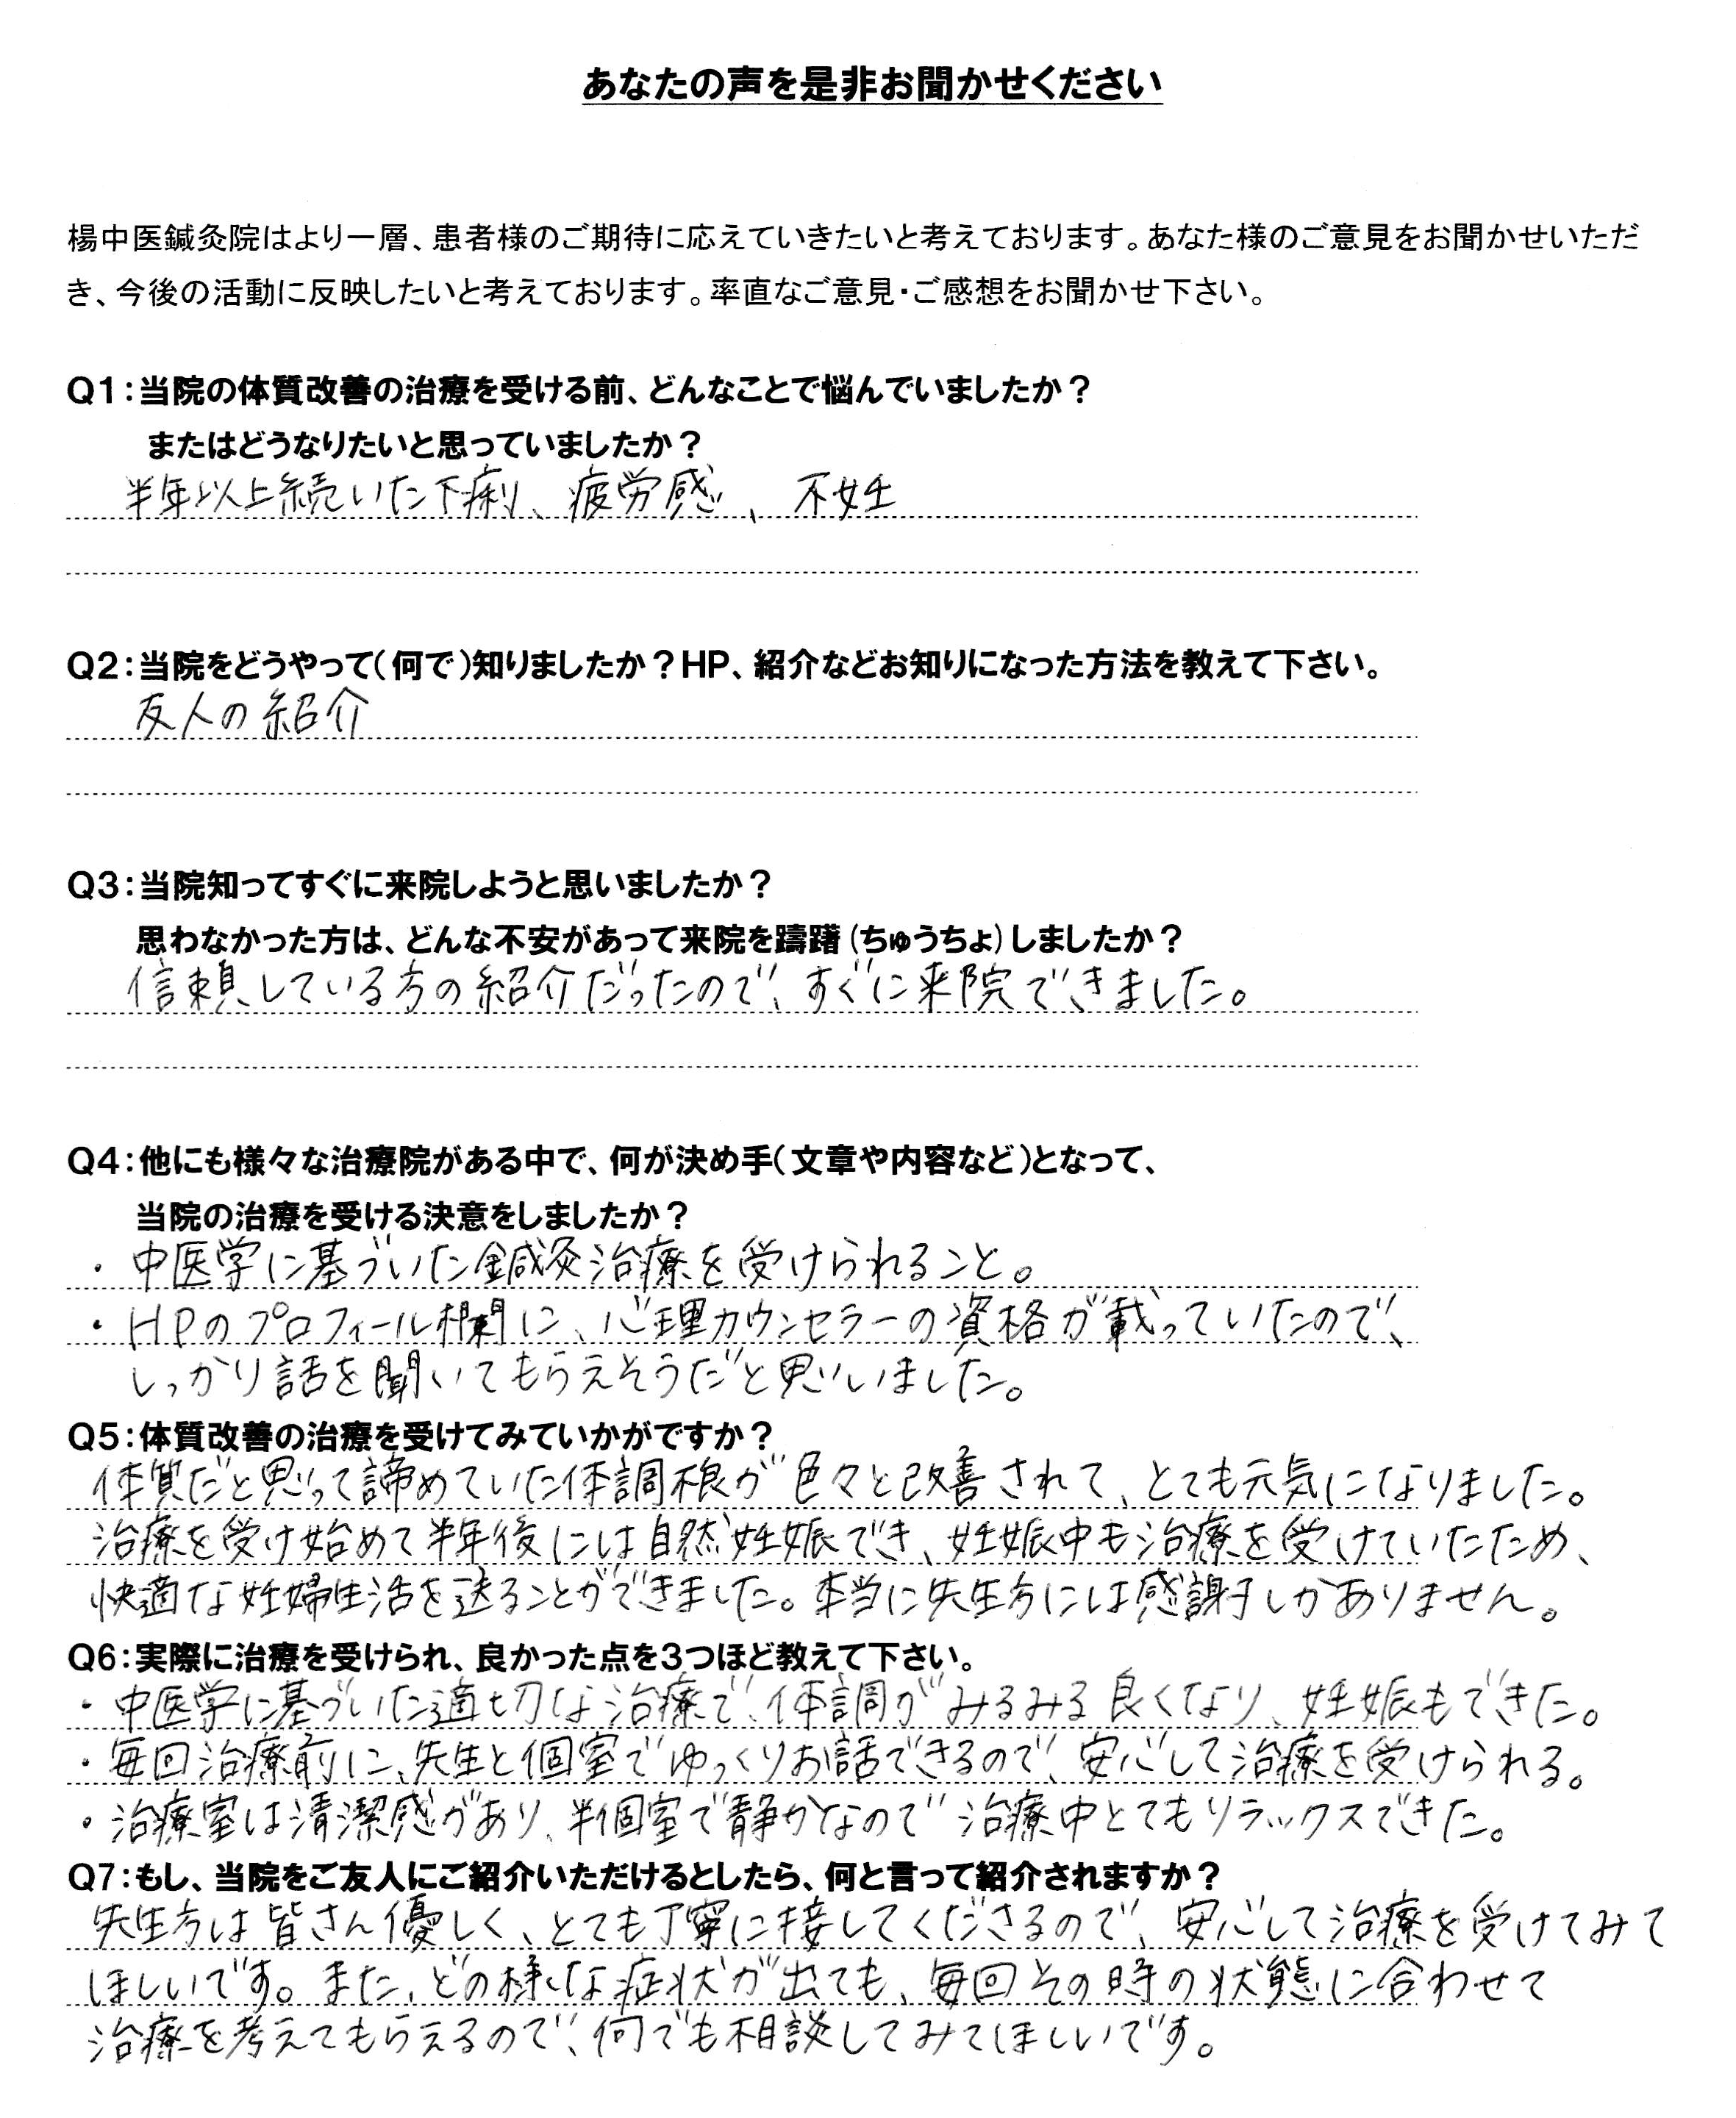 あなたの声を是非お聞かせください
楊中医鍼灸院はより一層、患者様のご期待に応えていきたいと考えております。あなた様のご意見をお聞かせいただ
き、今後の活動に反映したいと考えております。率直なご意見・ご感想をお聞かせ下さい。
Q1:当院の体質改善の治療を受ける前、どんなことで悩んでいましたか？
またはどうなりたいと思っていましたか？
半年以上続いた下痢、疲労感、不妊
Q2:当院をどうやって(何で)知りましたか？HP、紹介などお知りになった方法を教えて下さい。
友人の紹介
Q3:当院知ってすぐに来院しようと思いましたか？
思わなかった方は、どんな不安があって来院を躊躇(ちゅうちょ)しましたか？
信頼している方の紹介だったので、すぐに来院できました。
Q4:他にも様々な治療院がある中で、何が決め手(文章や内容など)となって、
当院の治療を受ける決意をしましたか？
・中医学に基づいた鍼灸治療を受けられること。
・HPのプロフィール欄に、心理カウンセラーの資格が載っていたので、
しっかり話を聞いてもらえそうだと思いました。
Q5:体質改善の治療を受けてみていかがですか？
体質だと思って諦めていた体調不良が色々と改善されて、とても元気になりました。
治療を受け始めて半年後には自然妊娠でき、妊娠中も治療を受けていたため、
快適な妊婦生活を送ることができました。本当に先生方には感謝しかありません。
Q6:実際に治療を受けられ、良かった点を3つほど教えて下さい。
・中医学に基づいた適切な治療で、体調がみるみる良くなり、妊娠もできた。
・毎回治療前に、先生と個室でゆっくりお話できるので、安心して治療を受けられる。
・治療室は清潔感があり、半個室で静かなので治療中とてもリラックスできた。
Q7:もし、当院をご友人にご紹介いただけるとしたら、何と言って紹介されますか？
先生方は皆さん優しく、とても丁寧に接してくださるので、安心して治療を受けてみて
ほしいです。また、どの様な症状が出ても、毎回その時の状態に合わせて
治療を考えてもらえるので、何でも相談してみてほしいです。